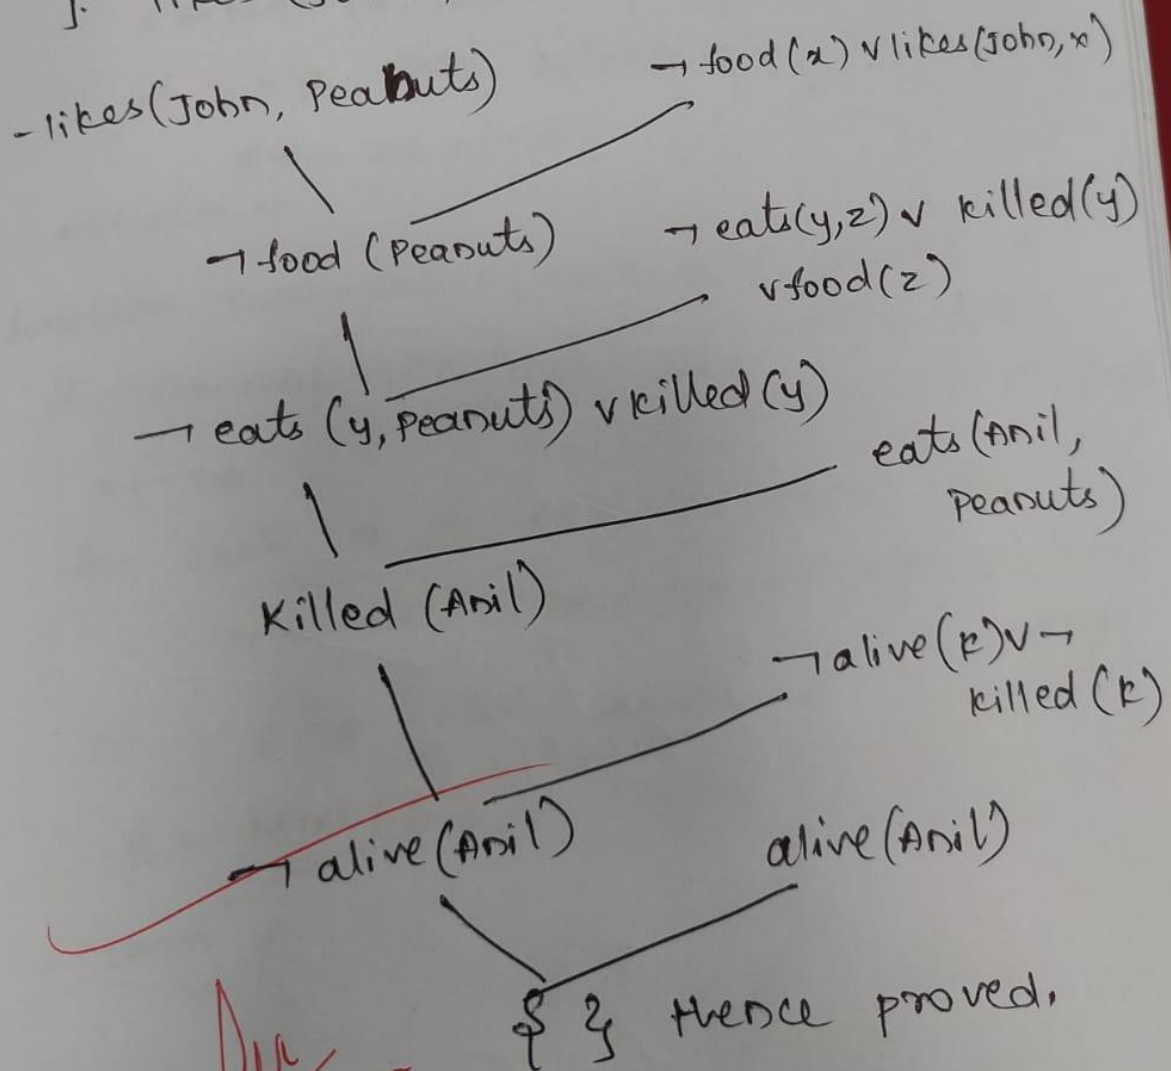 - likes(John, Peanuts)
¬ food(x) v likes(John, x)
¬ food (Peanuts)
¬ eats(y,z) v killed(y)
v food(z)
¬ eats (y, Peanuts) v killed (y)
eats(Anil,
Peanuts)
Killed (Anil)
¬ alive(k) v ¬
killed (k)
¬ alive(Anil)
alive(Anil)
{ } Hence proved.